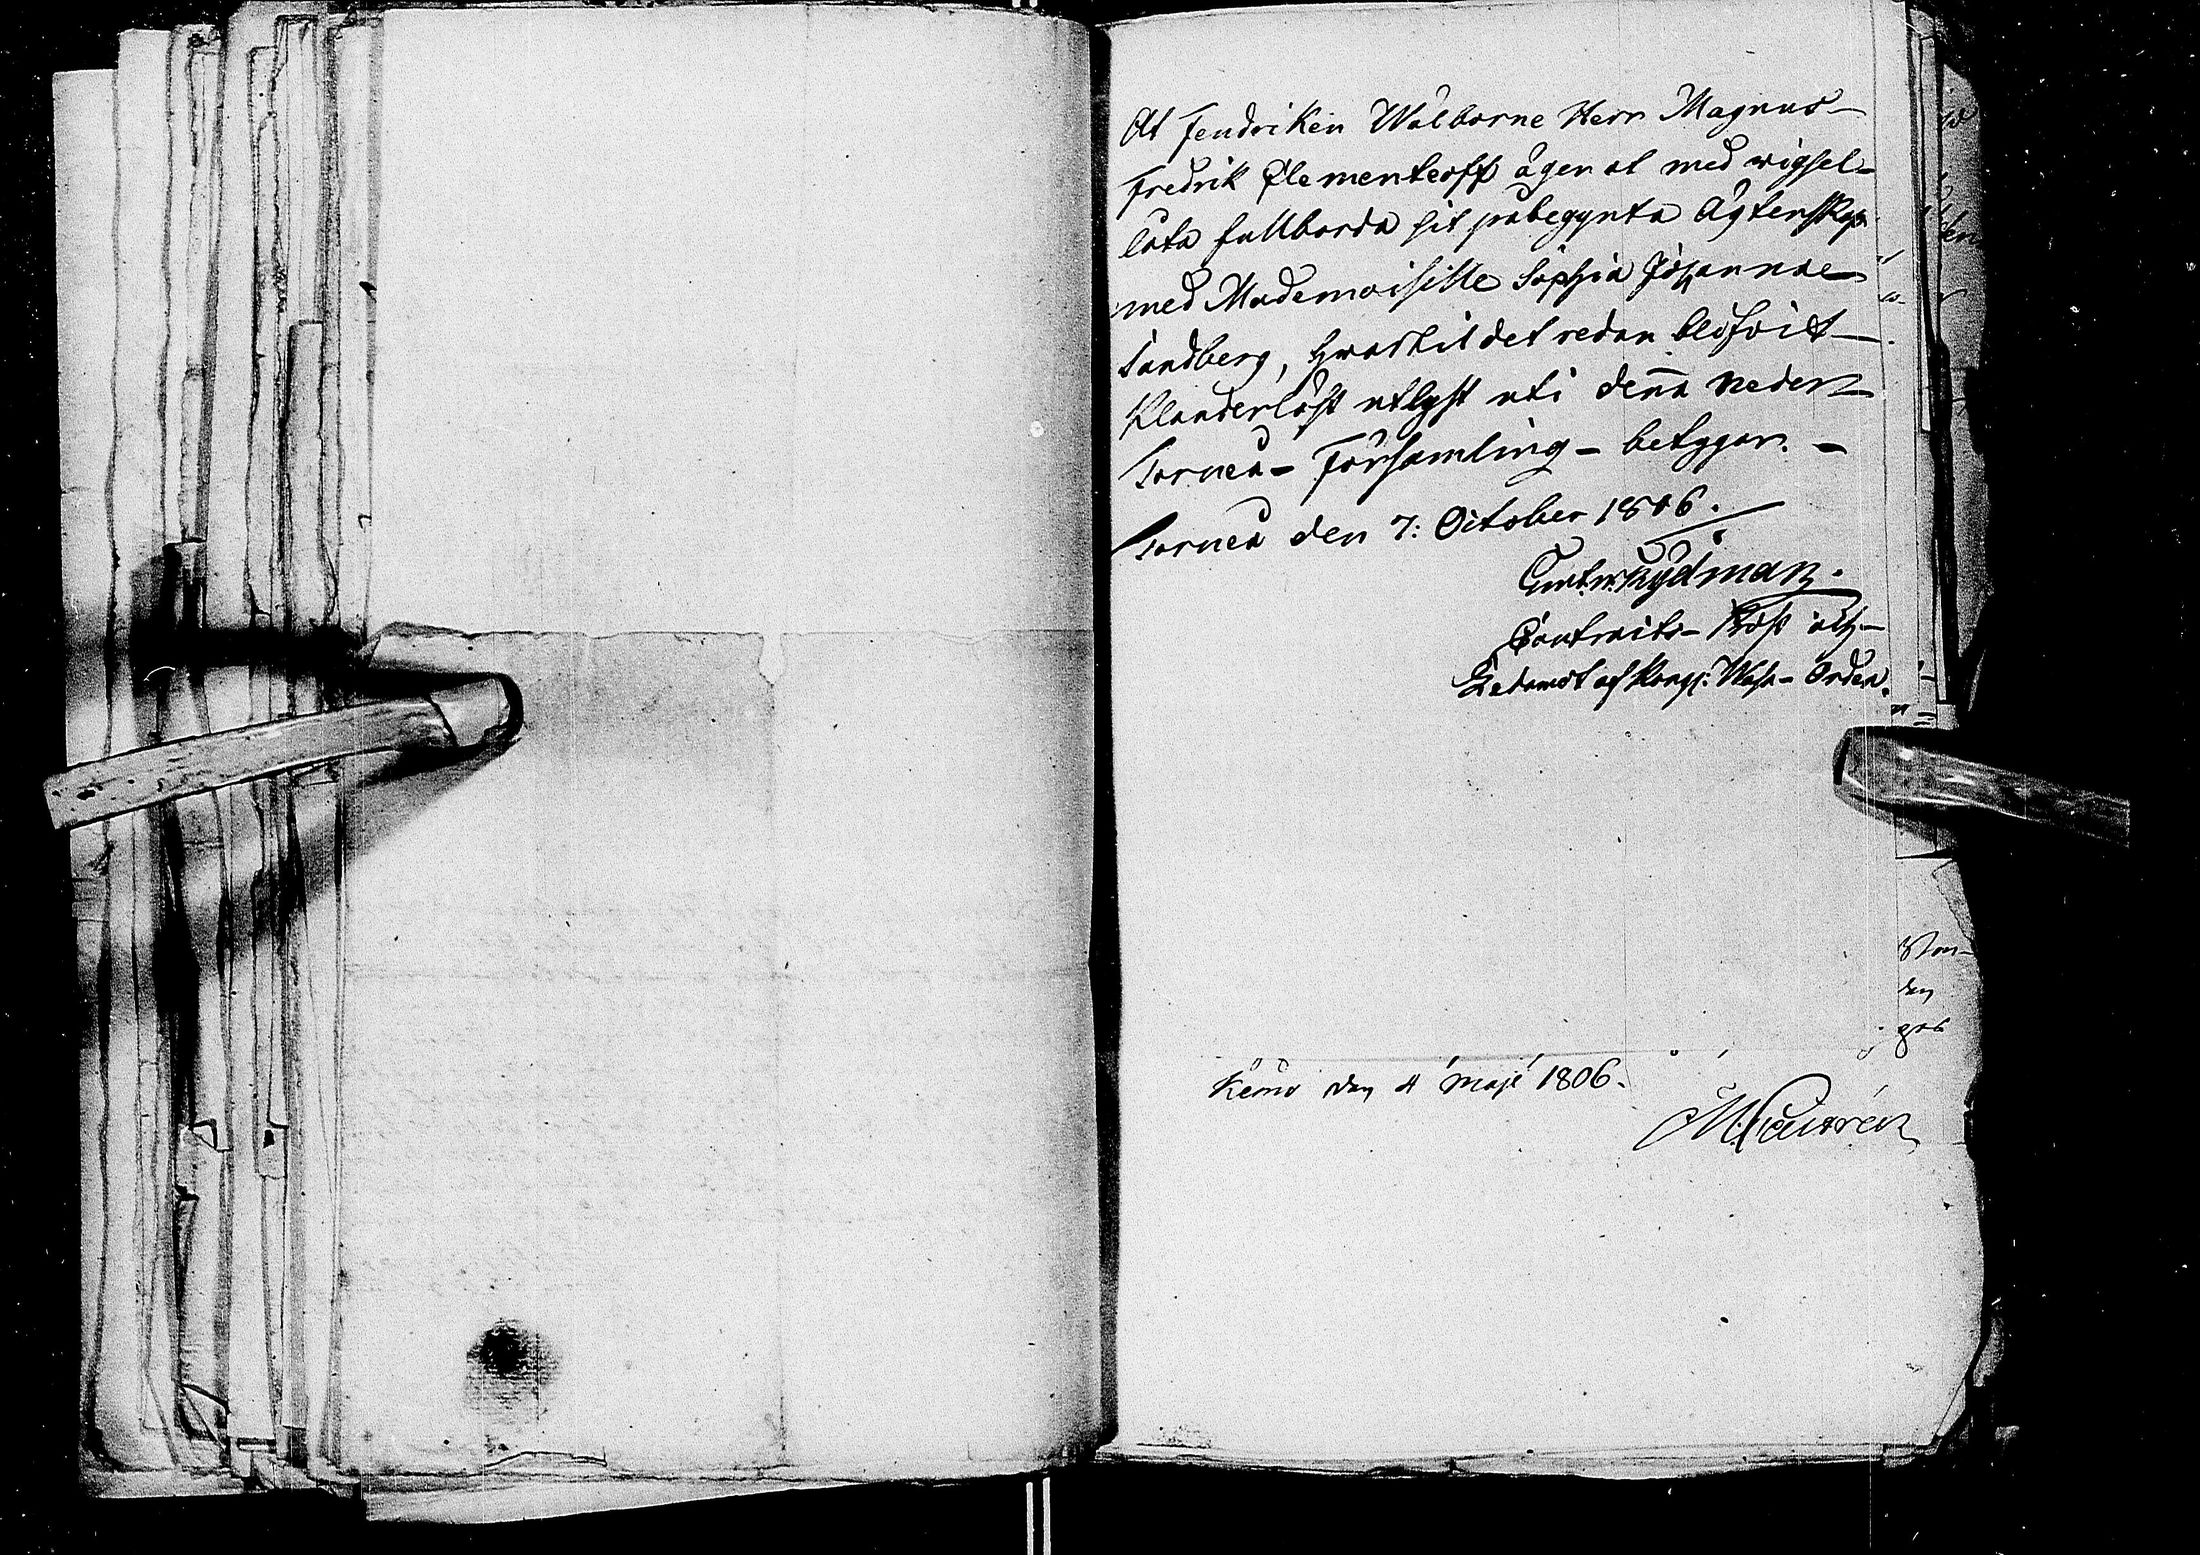 At Fendriken Wälborne Herr Magnus
Fredrik Clementeoff äger at med wigsel
låta fullborda sit påbegynta Ägtenskap
med Mademoiselle Sophia Johanna
Sandberg, hwartil det redan blifvit
Klanderlöst utlyst uti denna Neder
Torneå Församling betygar.
Torneå den 7: October 1806.
Rydman.
Contracts-Prost och
Ledamot af Kongl: Wasa-Orden.
Kemo den 4 Maji 1806.
den